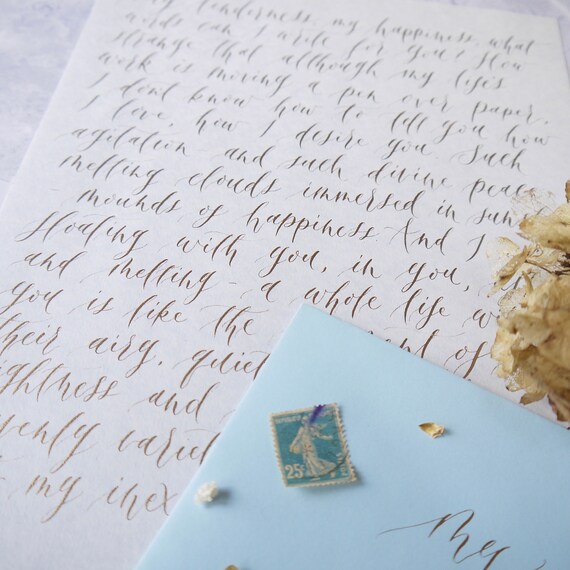 my tenderness, my happiness, what
words can I write for you? How
strange that although my life's
work is moving a pen over paper,
I don't know how to tell you how
I love, how I desire you. Such
agitation and such divine peace
melting clouds immersed in sun
mounds of happiness. And I
floating with you, in you,
and melting - a whole life
you is like the
their airy, quiet
and
my
25c
My